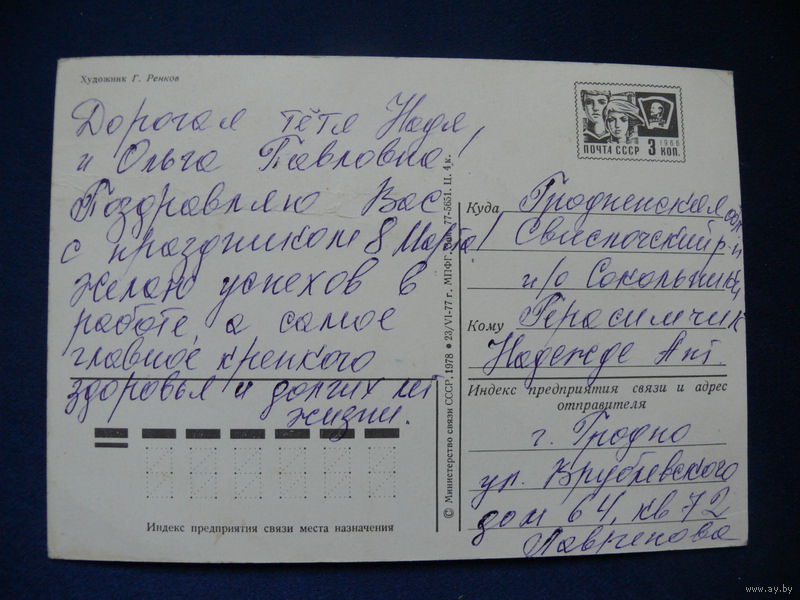 Художник Г. Ренков
Дорогая тётя Надя,
и Ольга Павловна!
Поздравляю Вас
с праздником 8 Марта!
Желаю успехов в
работе, а самое
главное крепкого
здоровья и долгих лет
жизни.
Индекс предприятия связи места назначения
© Министерство связи СССР, 1978 • 23/VI-77 г. МПФГ. Зак. 77-5651. Ц. 4 к.
ПОЧТА СССР 3 КОП.
1966
Куда Гродненская обл
Свислочский р-н
п/о Сокольники
Кому Герасимчик
Надежде Ант.
Индекс предприятия связи и адрес
отправителя
г. Гродно
ул. Врублевского
дом 64, кв 72
www.ay.by